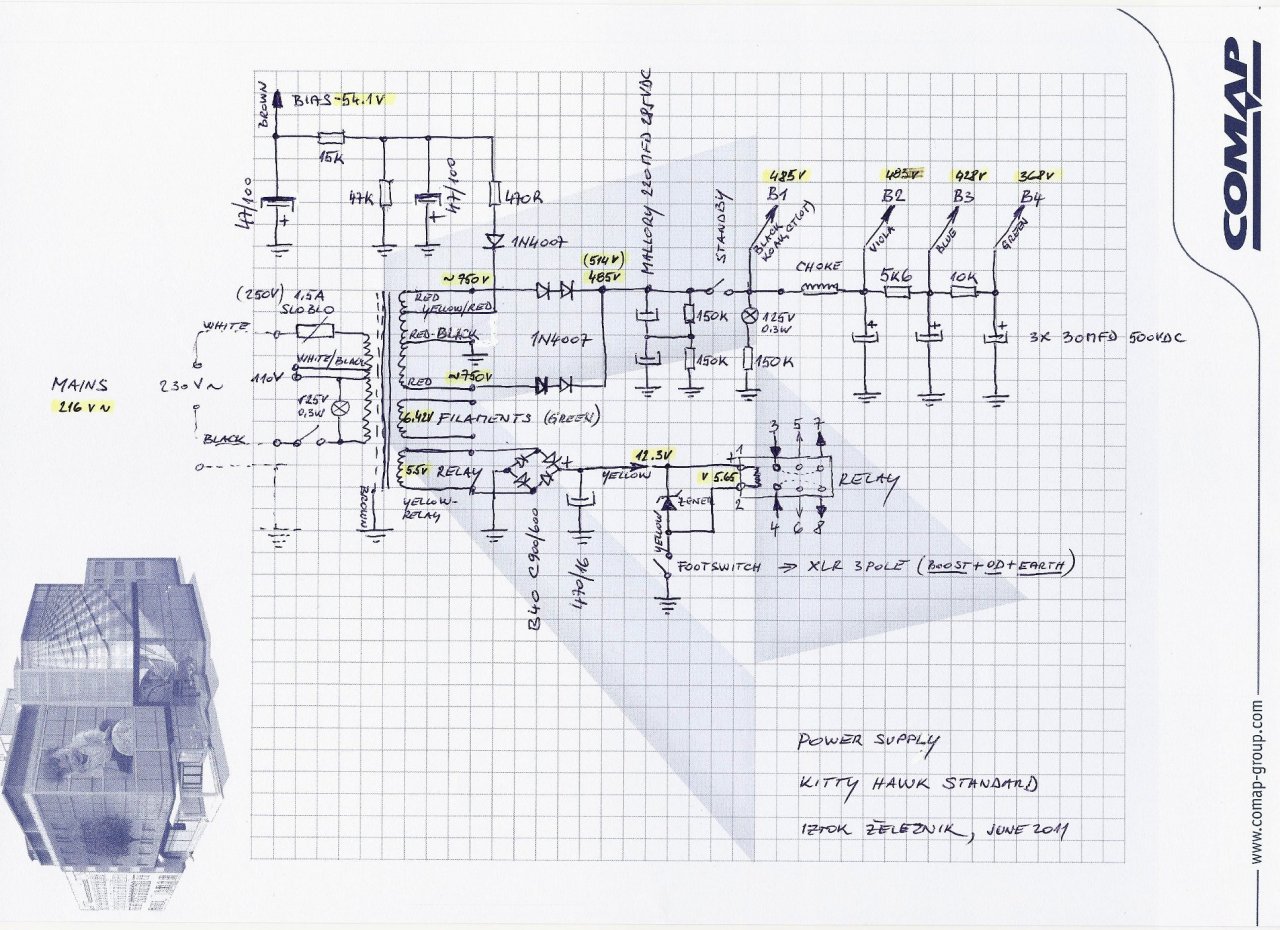 COMAP
www.comap-group.com
BROWN
BIAS -54.1V
15K
47/100
47K
47/100
470R
1N4007
MALLORY 220MFD 285VDC
STANDBY
485V
B1
BLACK
485V
B2
VIOLA
428V
B3
BLUE
368V
B4
GREEN
(514V)
485V
~750V
RED
YELLOW/RED
RED-BLACK
RED
~750V
1N4007
150K
150K
125V
0,3W
150K
CHOKE
5K6
10K
3X 30MFD 500VDC
(250V) 1,5A
SLOBLO
WHITE
WHITE/BLACK
110V
125V
0,3W
BLACK
MAINS
216V~
230V~
6.42V FILAMENTS (GREEN)
5.5V RELAY
YELLOW-
RELAY
BROWN
B40 C900/600
470/16
12.3V
YELLOW
V 5.65
ZENER
YELLOW
1
2
3 5 7
4 6 8
RELAY
FOOTSWITCH → XLR 3POLE (BOOST+OD+EARTH)
POWER SUPPLY
KITTY HAWK STANDARD
IZTOK ŽELEZNIK, JUNE 2011